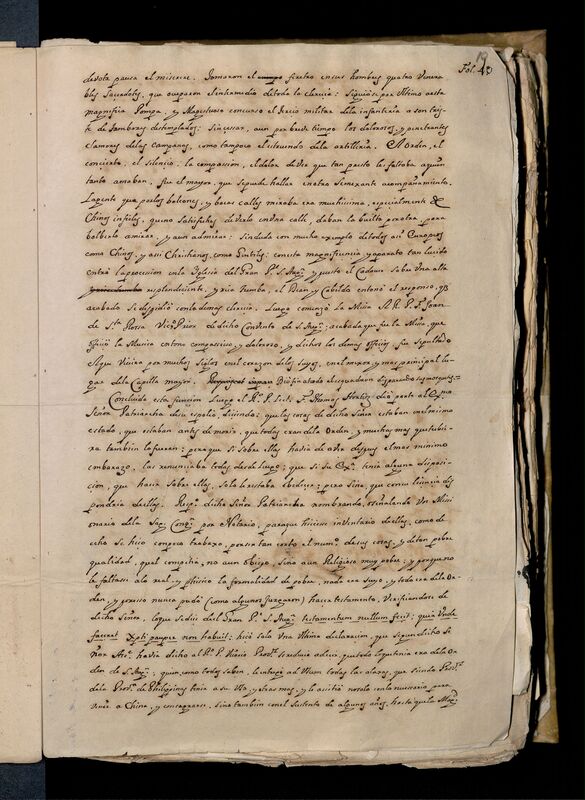 Fol. 43
devota pausa el miserere. Tomaron el feretro en sus hombros quatro Venera-
bles Sacerdotes, que ocuparon el intramedio de toda la clerecia: Siguióse por Ultimo a esta
magnifica Pompa, y Magestuoso concurso el tercio militar de la infanteria a son tris-
te de tambores destemplados: sin cessar, aun por breve tiempo los dolorosos, y penetrantes
clamores de las campanas, como tampoco el estruendo de la artilleria. El orden, el
concierto, el silencio, la compassion, el dolor de ver que tan presto les faltaba a quien
tanto amaban, fue el mayor, que se puede hallar en otro semexante acompañamiento.
La gente que por los balcones, y bocas calles miraba era muchissima, especialmente
Chinos infieles, que no satisfechos de verlo en Una calle, daban la buelta por otra, para
bolberlo a mirar, y aun admirar: sin duda con mucho exemplo de todos assi Europeos
como Chinos, y assi Christianos, como Gentiles: con esta magnificencia y aparato tan lucido
entró la procession en la Iglesia del Gran P.e S. Aug.n y puesto el Cadaver sobre Una alta
resplendeciente, y rica tumba, el Dean y Cabildo entonó el responso, q.e
acabado se despidió con lo demas clerecia. Luego comenzó la Missa el R. P. F. Joan
de S.ta Rossa Vic.o Prior de dicho Convento de S. Aug.n; acabada que fue la Missa, que
offició la Musica en tono compassivo, y doloroso, y dichos los demas officios, fue sepultado
el que Vivira por muchos Siglos en el corazon de los suyos, en el mexor, y mas principal lu-
gar de la Capilla mayor.
Concluida esta funcion luego el R.o P. Lect. F. Thomas Hortiz dió parte al Ex.mo
Señor Patriarcha de su espolio, diciendo: que las cosas de dicho Señor estaban en el mismo
estado, que estaban antes de morir, que todas eran de la Orden, y muchas mas que tubie-
ra tambien lo fueran: pero que si sobre ellas havia de aver despues el mas minimo
embarazo, las renunciaba todas desde luego; que si su Ex.a tenia alguna disposi-
cion, que hacer sobre ellas, solo le estaba obedecer; pero sino, que con su licencia dis-
pondria de ellas. Resp.e dicho Señor Patriarcha nombrando, o señalando Un Missi-
onario de la Sag. Cong.n por Notario, para que hiciesse inventario de ellas, como de
echo se hizo con poco trabaxo, por ser tan corto el num.o de sus cosas, y de tan pobre
qualidad, qual competia, no a un Obispo, sino a un Religioso muy pobre; y porque no
le faltasse a lo real, y phisico la formalidad de pobre, nada era suyo, y todo era de la Or-
den, y por esso nunca pudo (como algunos juzgaron) hacer testamento. Verificandose de
dicho Señor, lo que se dice del Gran P.e S. Aug.n testamentum nullum fecit; quia Unde
faceret Xpti pauper non habuit; hizo solo Una Ultima declaracion, que segun dicho Se-
ñor havia dicho al R. P. Vicario Prov.l se reducia a decir, que todo lo que tenia era de la Or-
den de S. Aug.n, quien, como todos saben, le entregó ad Usum todas las alaxas, que siendo Prov.l
de la Prov.a de Philippinas tenia a su Uso, y otras mas, y le assistió no solo con lo necessario para
venir a China, y consagrarse, sino tambien con el Sustento de algunos años, hasta que la Mag.d